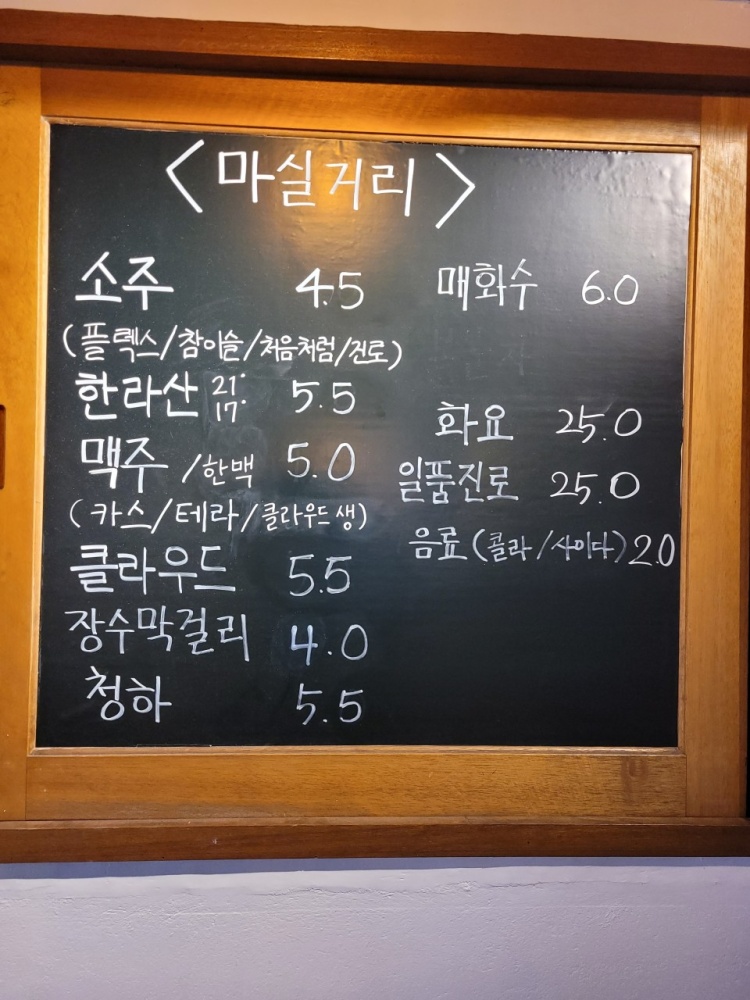 <마실거리>
소주 4.5
(플렉스/참이슬/처음처럼/진로)
한라산 21. 17. 5.5
맥주 /한맥 5.0
(카스/테라/클라우드 생)
클라우드 5.5
장수막걸리 4.0
청하 5.5
매화수 6.0
화요 25.0
일품진로 25.0
음료(콜라/사이다) 2.0